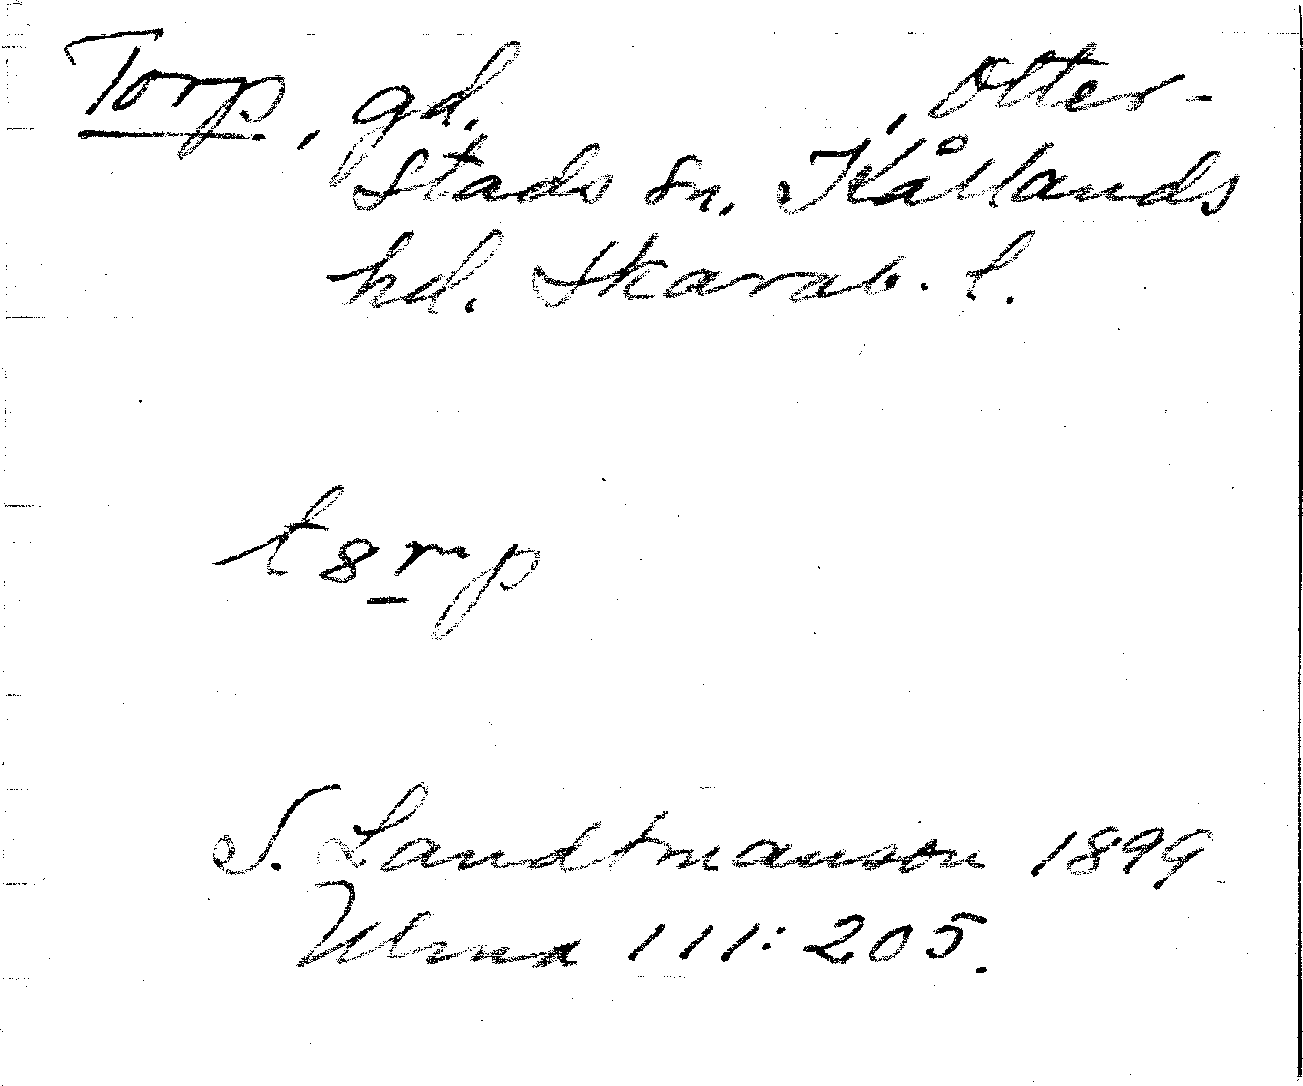 Torp, gd. , Otter-
stads sn. Kållands
hd. Skarab. l.
t8rp
S. Landtmanson 1899
Ulma 111:205.